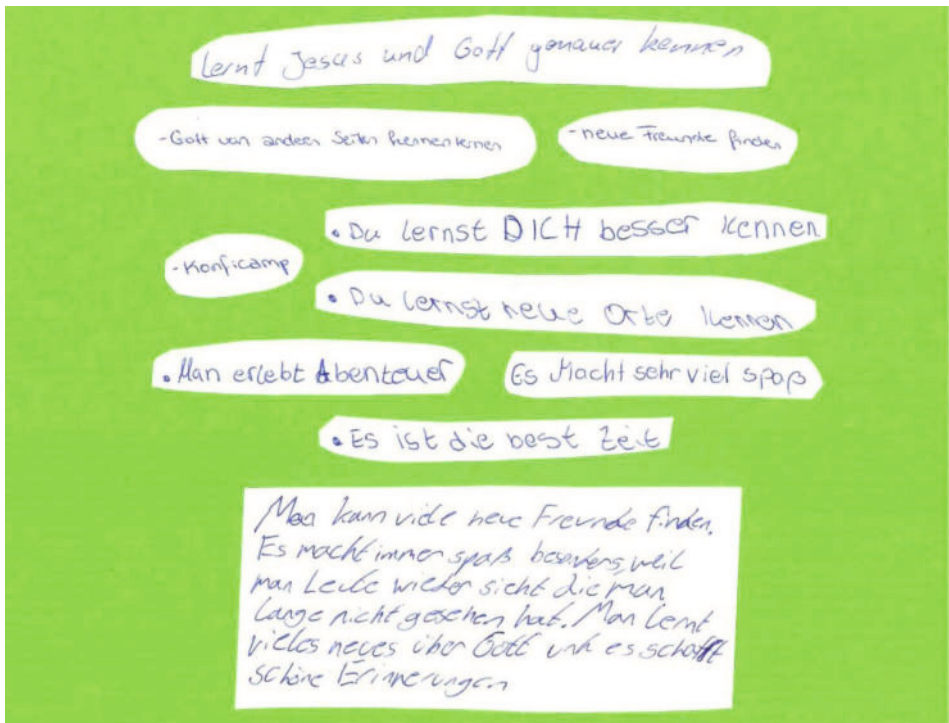 lernt Jesus und Gott genauer kennen
-Gott von anderen Seiten kennenlernen
-neue Freunde finden
• Du lernst DICH besser kennen
-Konficamp
• Du lernst neue Orte kennen
• Man erlebt Abenteuer
Es Macht sehr viel spaß
• Es ist die best Zeit
Man kann viele neue Freunde finden.
Es macht immer spaß besonders, weil
man Leute wieder sieht die man
lange nicht gesehen hat. Man lernt
vieles neues über Gott und es schafft
schöne Erinnerungen